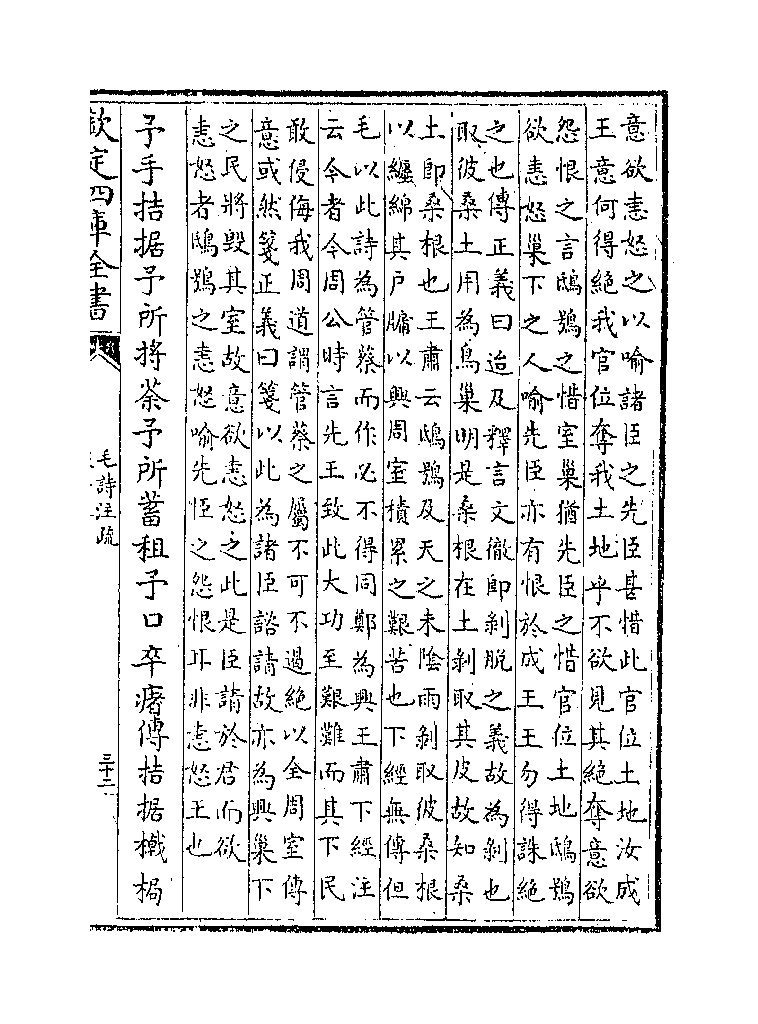 意欲恚怒之以喻諸臣之先臣甚惜此官位土地汝成
王意何得絶我官位奪我土地乎不欲見其絶奪意欲
怨恨之言鴟鴞之惜室巢猶先臣之惜官位土地鴟鴞
欲恚怒巢下之人喻先臣亦有恨於成王王勿得誅絶
之也傳正義曰迨及釋言文徹即剝脱之義故為剝也
取彼桑土用為鳥巢明是桑根在土剝取其皮故知桑
土即桑根也王肅云鴟鴞及天之未陰雨剝取彼桑根
以纏綿其戸牖以興周室積累之艱苦也下經無傳但
毛以此詩為管蔡而作必不得同鄭為興王肅下經注
云今者今周公時言先王致此大功至艱難而其下民
敢侵侮我周道謂管蔡之屬不可不遏絶以全周室傳
意或然箋正義曰箋以此為諸臣諮請故亦為興巢下
之民將毁其室故意欲恚怒之此是臣請於君而欲
恚怒者鴟鴞之恚怒喻先臣之怨恨耳非恚怒王也
予手拮据予所捋荼予所蓄租予口卒瘏傳拮据㦸挶
欽定四庫全書
毛詩注疏
三十二